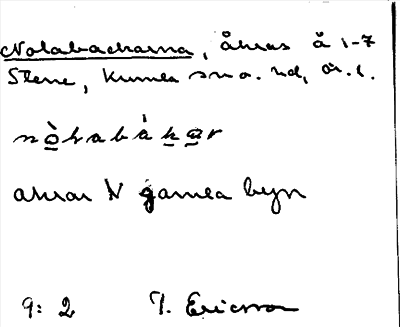 Nolabackarna, åkrar å 1-7
Stene, Kumla sn o. hd, Ör. l.
nòlabàkar
åkrar N gamla byn
9: 2 T. Ericsson